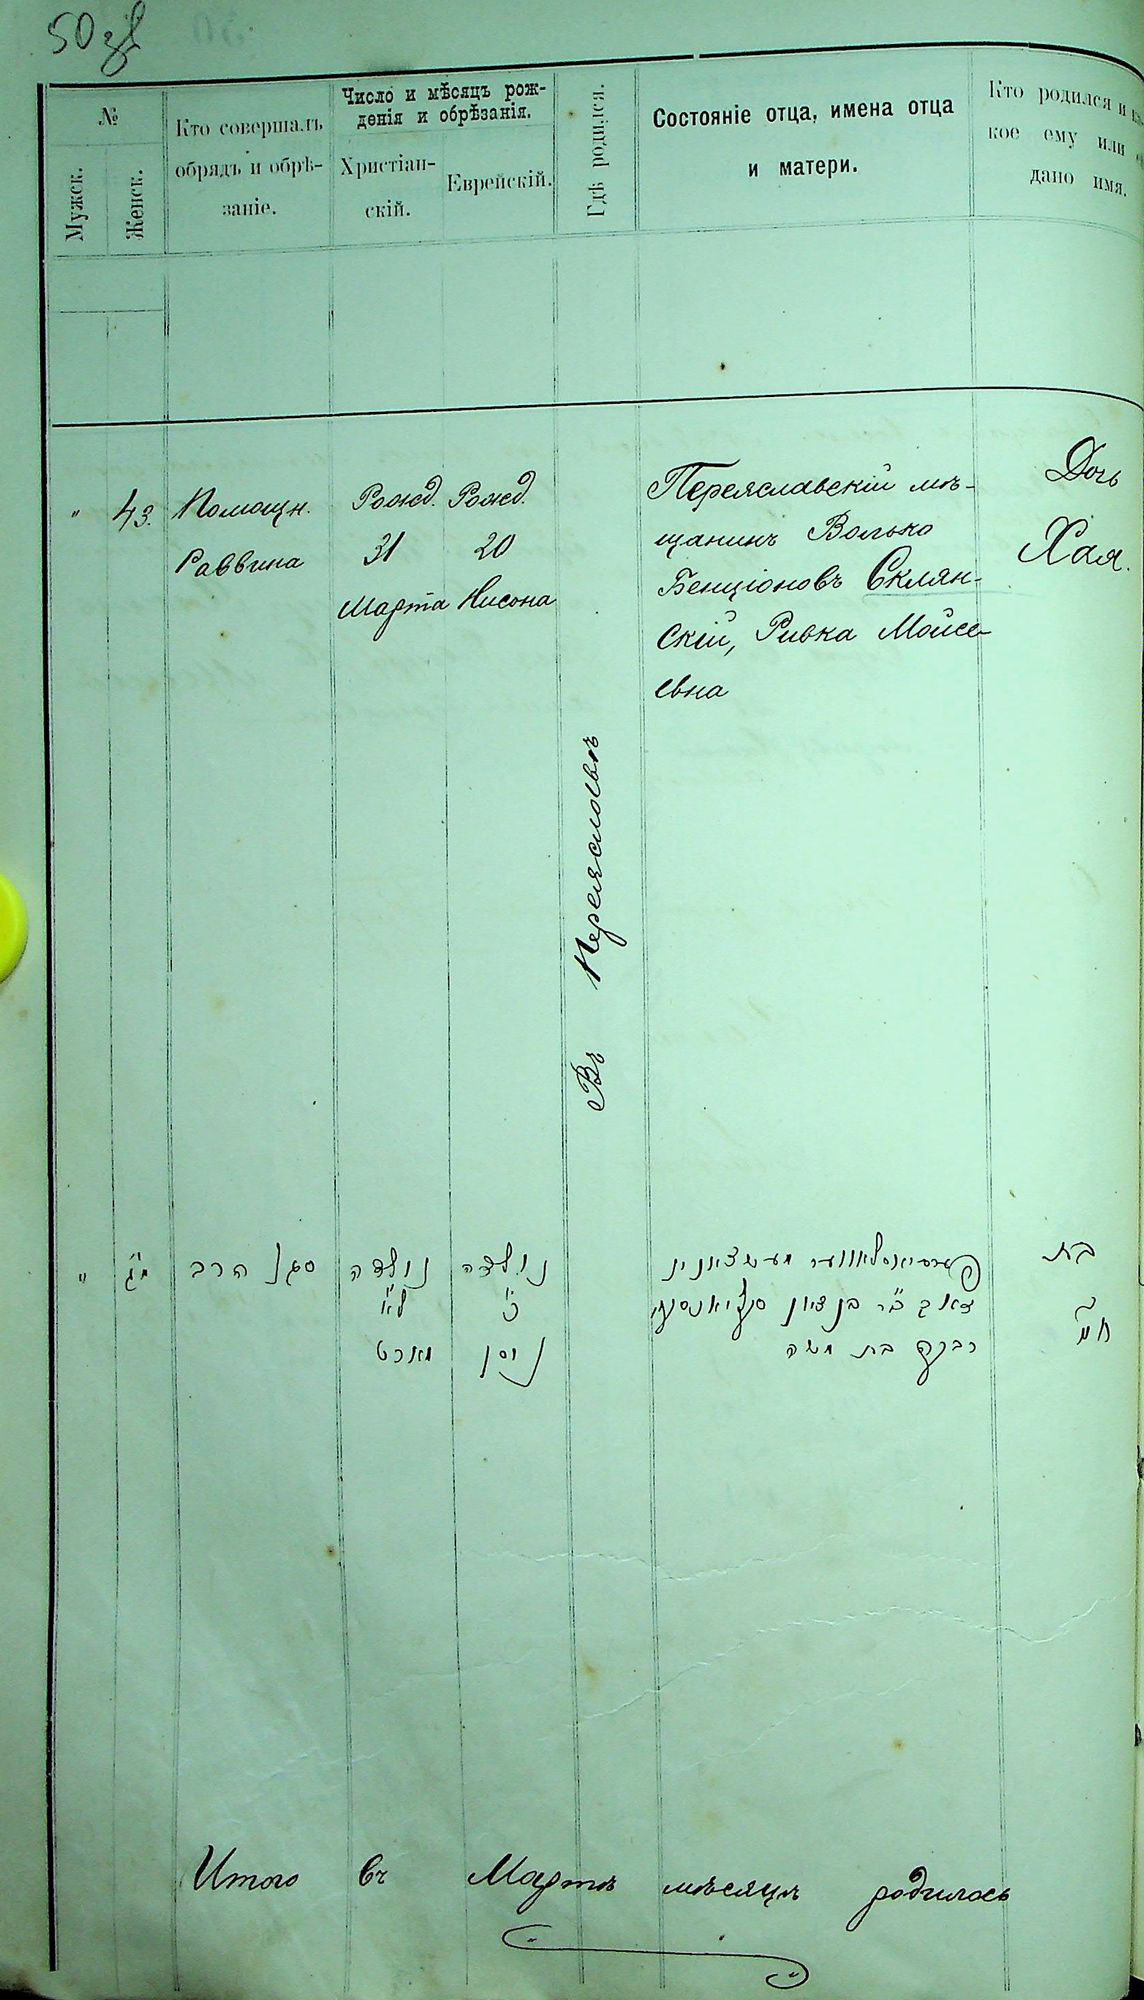 50 зв
№
Мужск.
Женск.
Кто совершалъ
обрядъ и обрѣ-
заніе.
Число и мѣсяцъ рож-
денія и обрѣзанія.
Христіан-
скій.
Еврейскій.
Гдѣ родился.
Состояніе отца, имена отца
и матери.
Кто родился и
кое ему или
дано имя.
" 43.
Помощн.
Раввина
Рожд.
31
Марта
Рожд.
20
Нисона
Въ Переяславѣ
Переяславскій мѣ-
щанинъ Волько
Бенціоновъ Склян-
скій, Ривка Мойсе-
евна
Дочь
Хая.
" מ״ג
סגן הרב
נולדה
ל״א
מארט
נולדה
כ׳
ניסן
פערעיאסלאווער מעשצאנין
בן ציון
רבקה בת משה
בת
חי׳
Итого въ Мартѣ мѣсяцѣ родилось